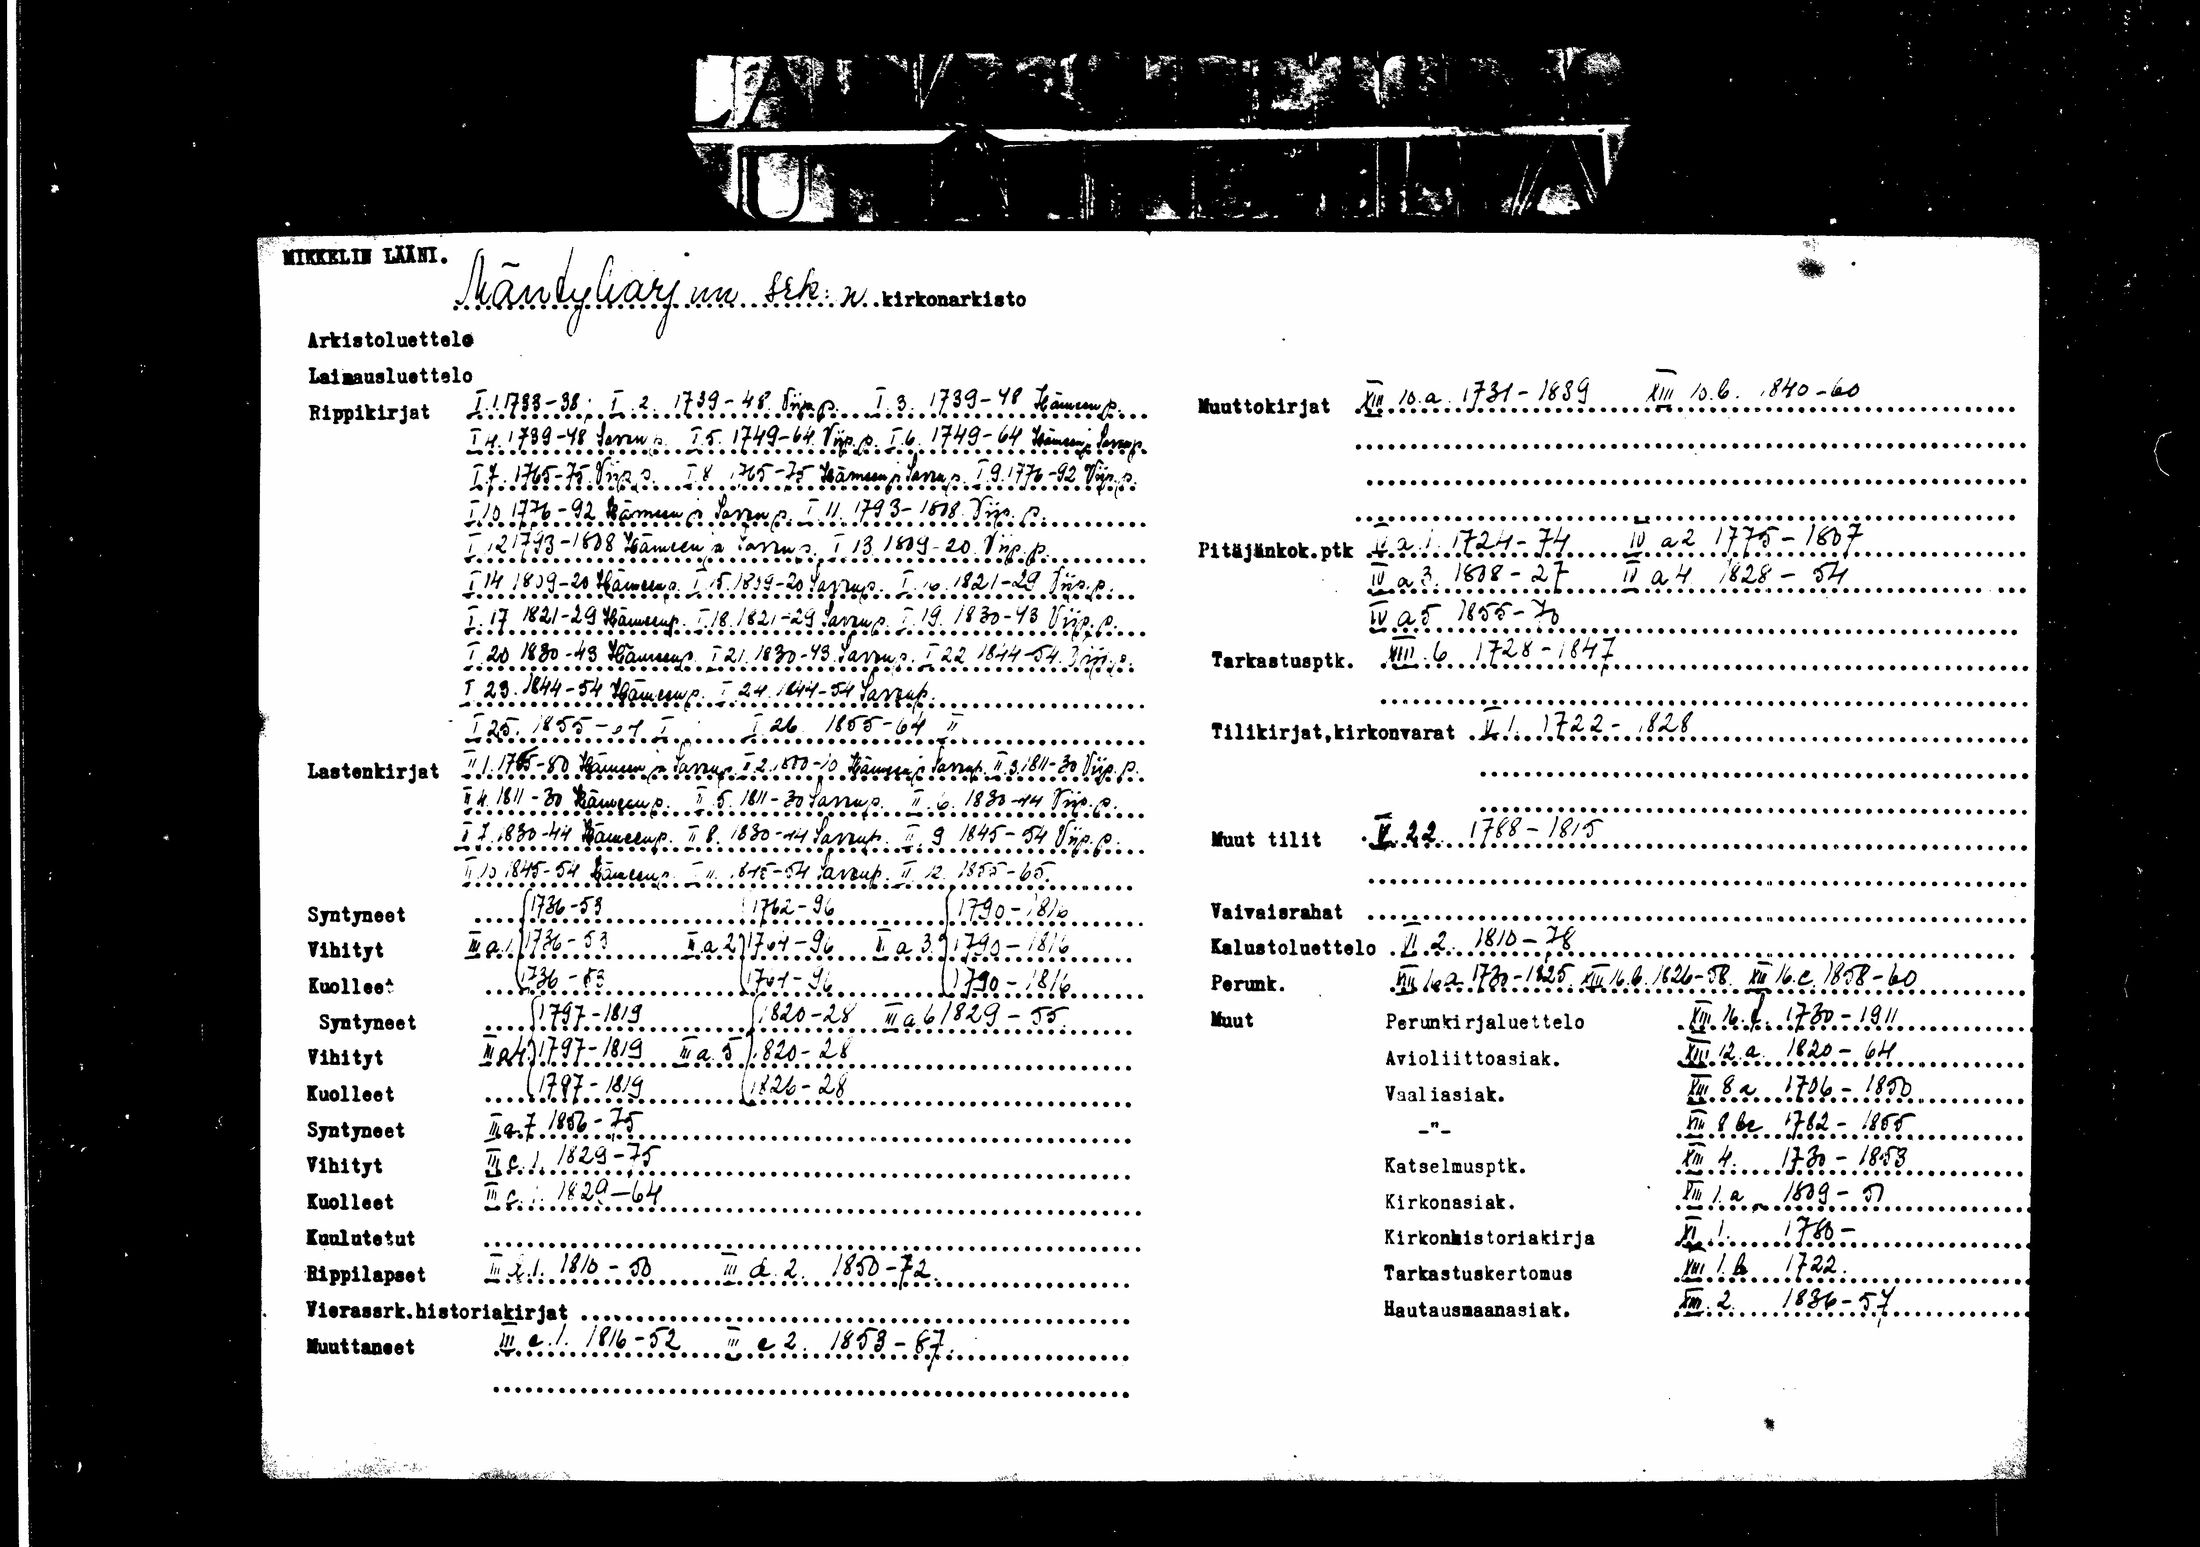 MIKKELIN LÄÄNI.
Mäntyharjun srk:n kirkonarkisto
Arkistoluettelo
Lainausluettelo
Rippikirjat I.1.1733-38; I.2. 1739-48 Viip.p. I.3. 1739-48 Hämeen p.
I.4. 1739-48 Savon p. I.5. 1749-64 Viip.p. I.6. 1749-64 Hämeen ja Savon p.
I.7. 1765-75 Viip.p. I.8 1765-75 Hämeen ja Savon p. I.9. 1776-92 Viip.p.
I.10 1776-92 Hämeen ja Savon p. I.11. 1793-1808 Viip.p.
I.12 1793-1808 Hämeen ja Savon p. I.13. 1809-20 Viip.p.
I.14 1809-20 Hämeen p. I.15. 1809-20 Savon p. I.16. 1821-29 Viip.p.
I.17 1821-29 Hämeen p. I.18. 1821-29 Savon p. I.19. 1830-43 Viip.p.
I.20 1830-43 Hämeen p. I.21. 1830-43 Savon p. I.22 1844-54 Viip.p.
I 23. 1844-54 Hämeen p. I 24. 1844-54 Savon p.
I 25. 1855- I I.26. 1855-64 II
Lastenkirjat II 1. 1765-80 Hämeen ja Savon p. 2. 1800-10 Hämeen ja Savon p. II.3. 1811-30 Viip.p.
II 4. 1811-30 Hämeen p. II.5. 1811-30 Savon p. II.6. 1830-44 Viip.p.
7. 1830-44 Hämeen p. II 8. 1830-44 Savon p. II.9 1845-54 Viip.p.
II.10 1845-54 Hämeen p. 11. 1845-54 Savon p. II.12. 1855-65.
Syntyneet 1736-53 1762-96 1790-1816
Vihityt III a.1. 1736-53 a 2 1764-96 a 3. 1790-1816
Kuolleet 1736-53 1764-96 1790-1816
Syntyneet 1797-1819 1820-28 III a 6 1829-55.
Vihityt III a 4. 1797-1819 III a.5 1820-28
Kuolleet 1797-1819 1826-28
Syntyneet III a.7 1856-75
Vihityt III c.1. 1829-75
Kuolleet III 1829-64
Kuulutetut
Rippilapset III d.1. 1810-50 III d.2. 1850-72.
Vierassrk.historiakirjat
Muuttaneet III e.1. 1816-52 III e 2. 1853-67.
Muuttokirjat XIII 10.a. 1731-1839 XIII 10.b. 1840-60
Pitäjänkok.ptk IV a.1. 1724-74 IV a 2 1775-1807
IV a 3. 1808-27 IV a 4 1828-54
IV a 5 1855-70
Tarkastusptk. XIII.6 1728-1847
Tilikirjat,kirkonvarat V.1. 1722-1828
Muut tilit V.22. 1788-1815
Vaivaisrahat
Kalustoluettelo VI 2. 1810-78
Perunk. XIII 16.a 1730-1825. XIII 16.b. 1826-58. XIII 16.c. 1858-60
Muut Perunkirjaluettelo XIII 16. 1730-1911
Avioliittoasiak. XIII 12.a. 1820-64
Vaaliasiak. XIII 8 a 1706-1850
-"- XIII 8 bc 1782-1855
Katselmusptk. XIII 4. 1730-1853
Kirkonasiak. XIII 1.a 1809-51
Kirkonhistoriakirja XI.1. 1780-
Tarkastuskertomus XIII 1.b 1722.
Hautausmaanasiak. XIII.2. 1836-57